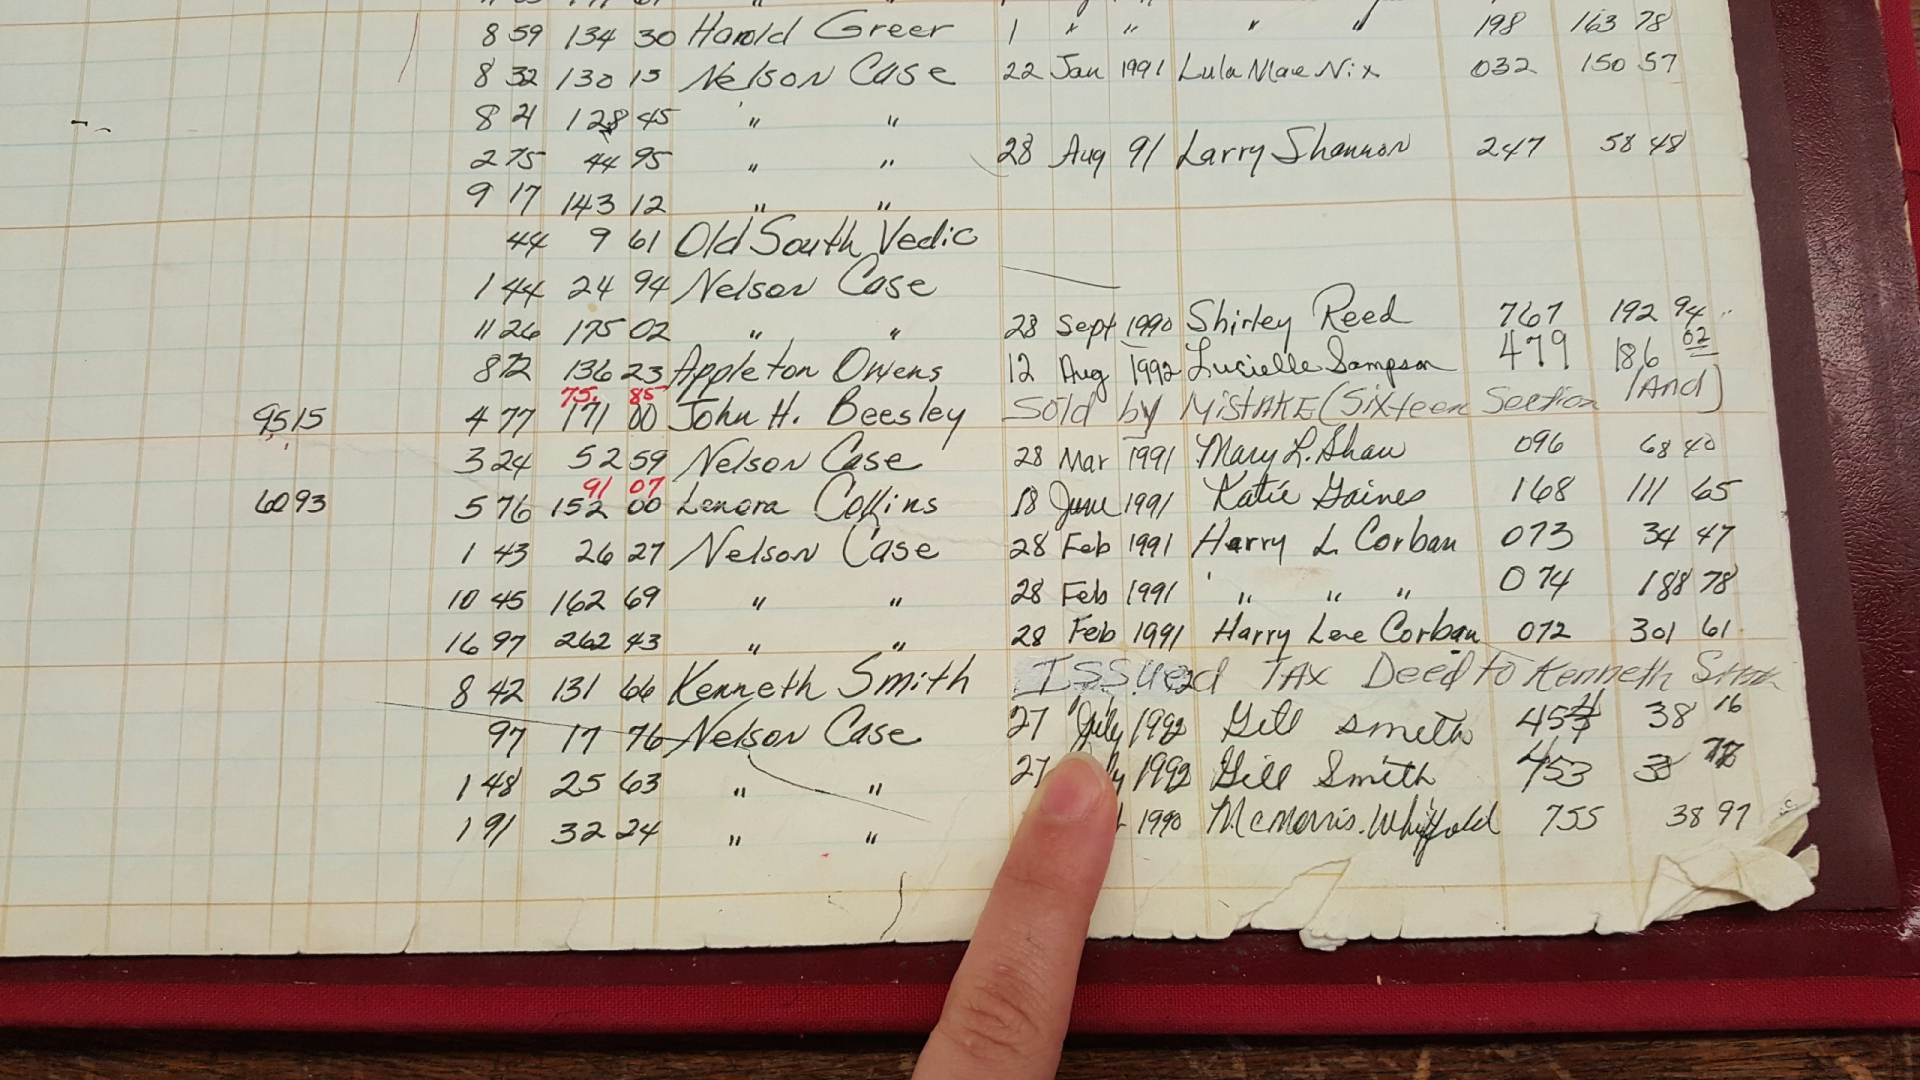 8 59 134 30 Harold Greer 1 " " " " 198 163 78
8 32 130 15 Nelson Case 22 Jan 1991 Lula Mae Nix 032 150 57
8 21 128 45 " "
2 75 44 95 " " 28 Aug 91 Larry Shannon 247 58 48
9 17 143 12 " "
44 9 61 Old South Vedic
1 44 24 94 Nelson Case
11 26 175 02 " " 28 Sept 1990 Shirley Reed 767 192 94
8 72 136 23 Appleton Owens 12 Aug 1992 Lucielle Sampson 479 186 02
75. 85
95 15 4 77 171 00 John H. Beesley Sold by Mistake (Sixteen Section land)
3 24 52 59 Nelson Case 28 Mar 1991 Mary L. Shaw 096 68 40
91 07
60 93 5 76 152 00 Lenora Collins 18 June 1991 Katie Gaines 168 111 65
1 43 26 27 Nelson Case 28 Feb 1991 Harry L Corban 073 34 47
10 45 162 69 " " 28 Feb 1991 " " " 074 188 78
16 97 262 43 " " 28 Feb 1991 Harry Lee Corban 072 301 61
8 42 131 66 Kenneth Smith ISSued TAX Deed to Kenneth Smith
97 17 76 Nelson Case 27 July 1992 Gill Smith 454 38 16
1 48 25 63 " " 27 1992 Gill Smith 453
1 91 32 24 " " 1990 McMorris 755 38 97